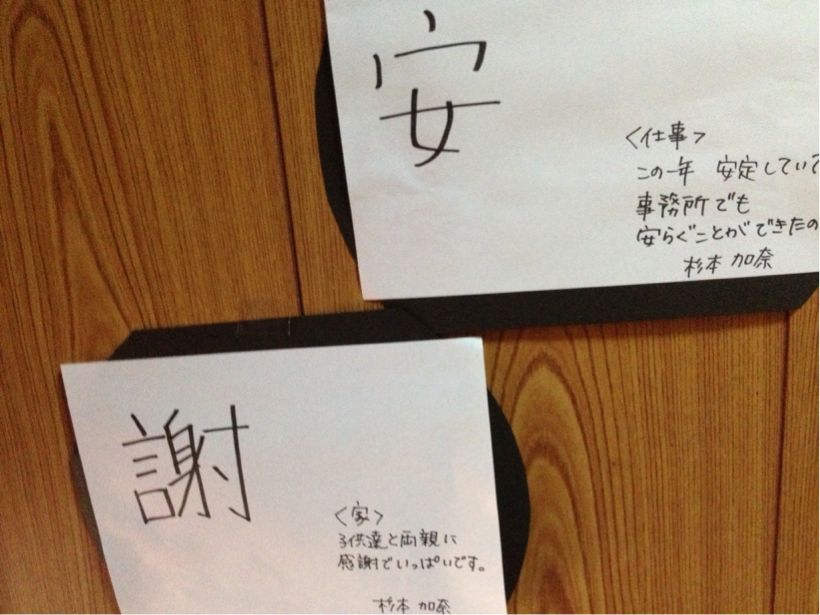 安
<仕事>
この一年 安定していて
事務所でも
安らぐことができたの
杉本 加奈
謝
<家>
子供達と両親に
感謝でいっぱいです。
杉本 加奈